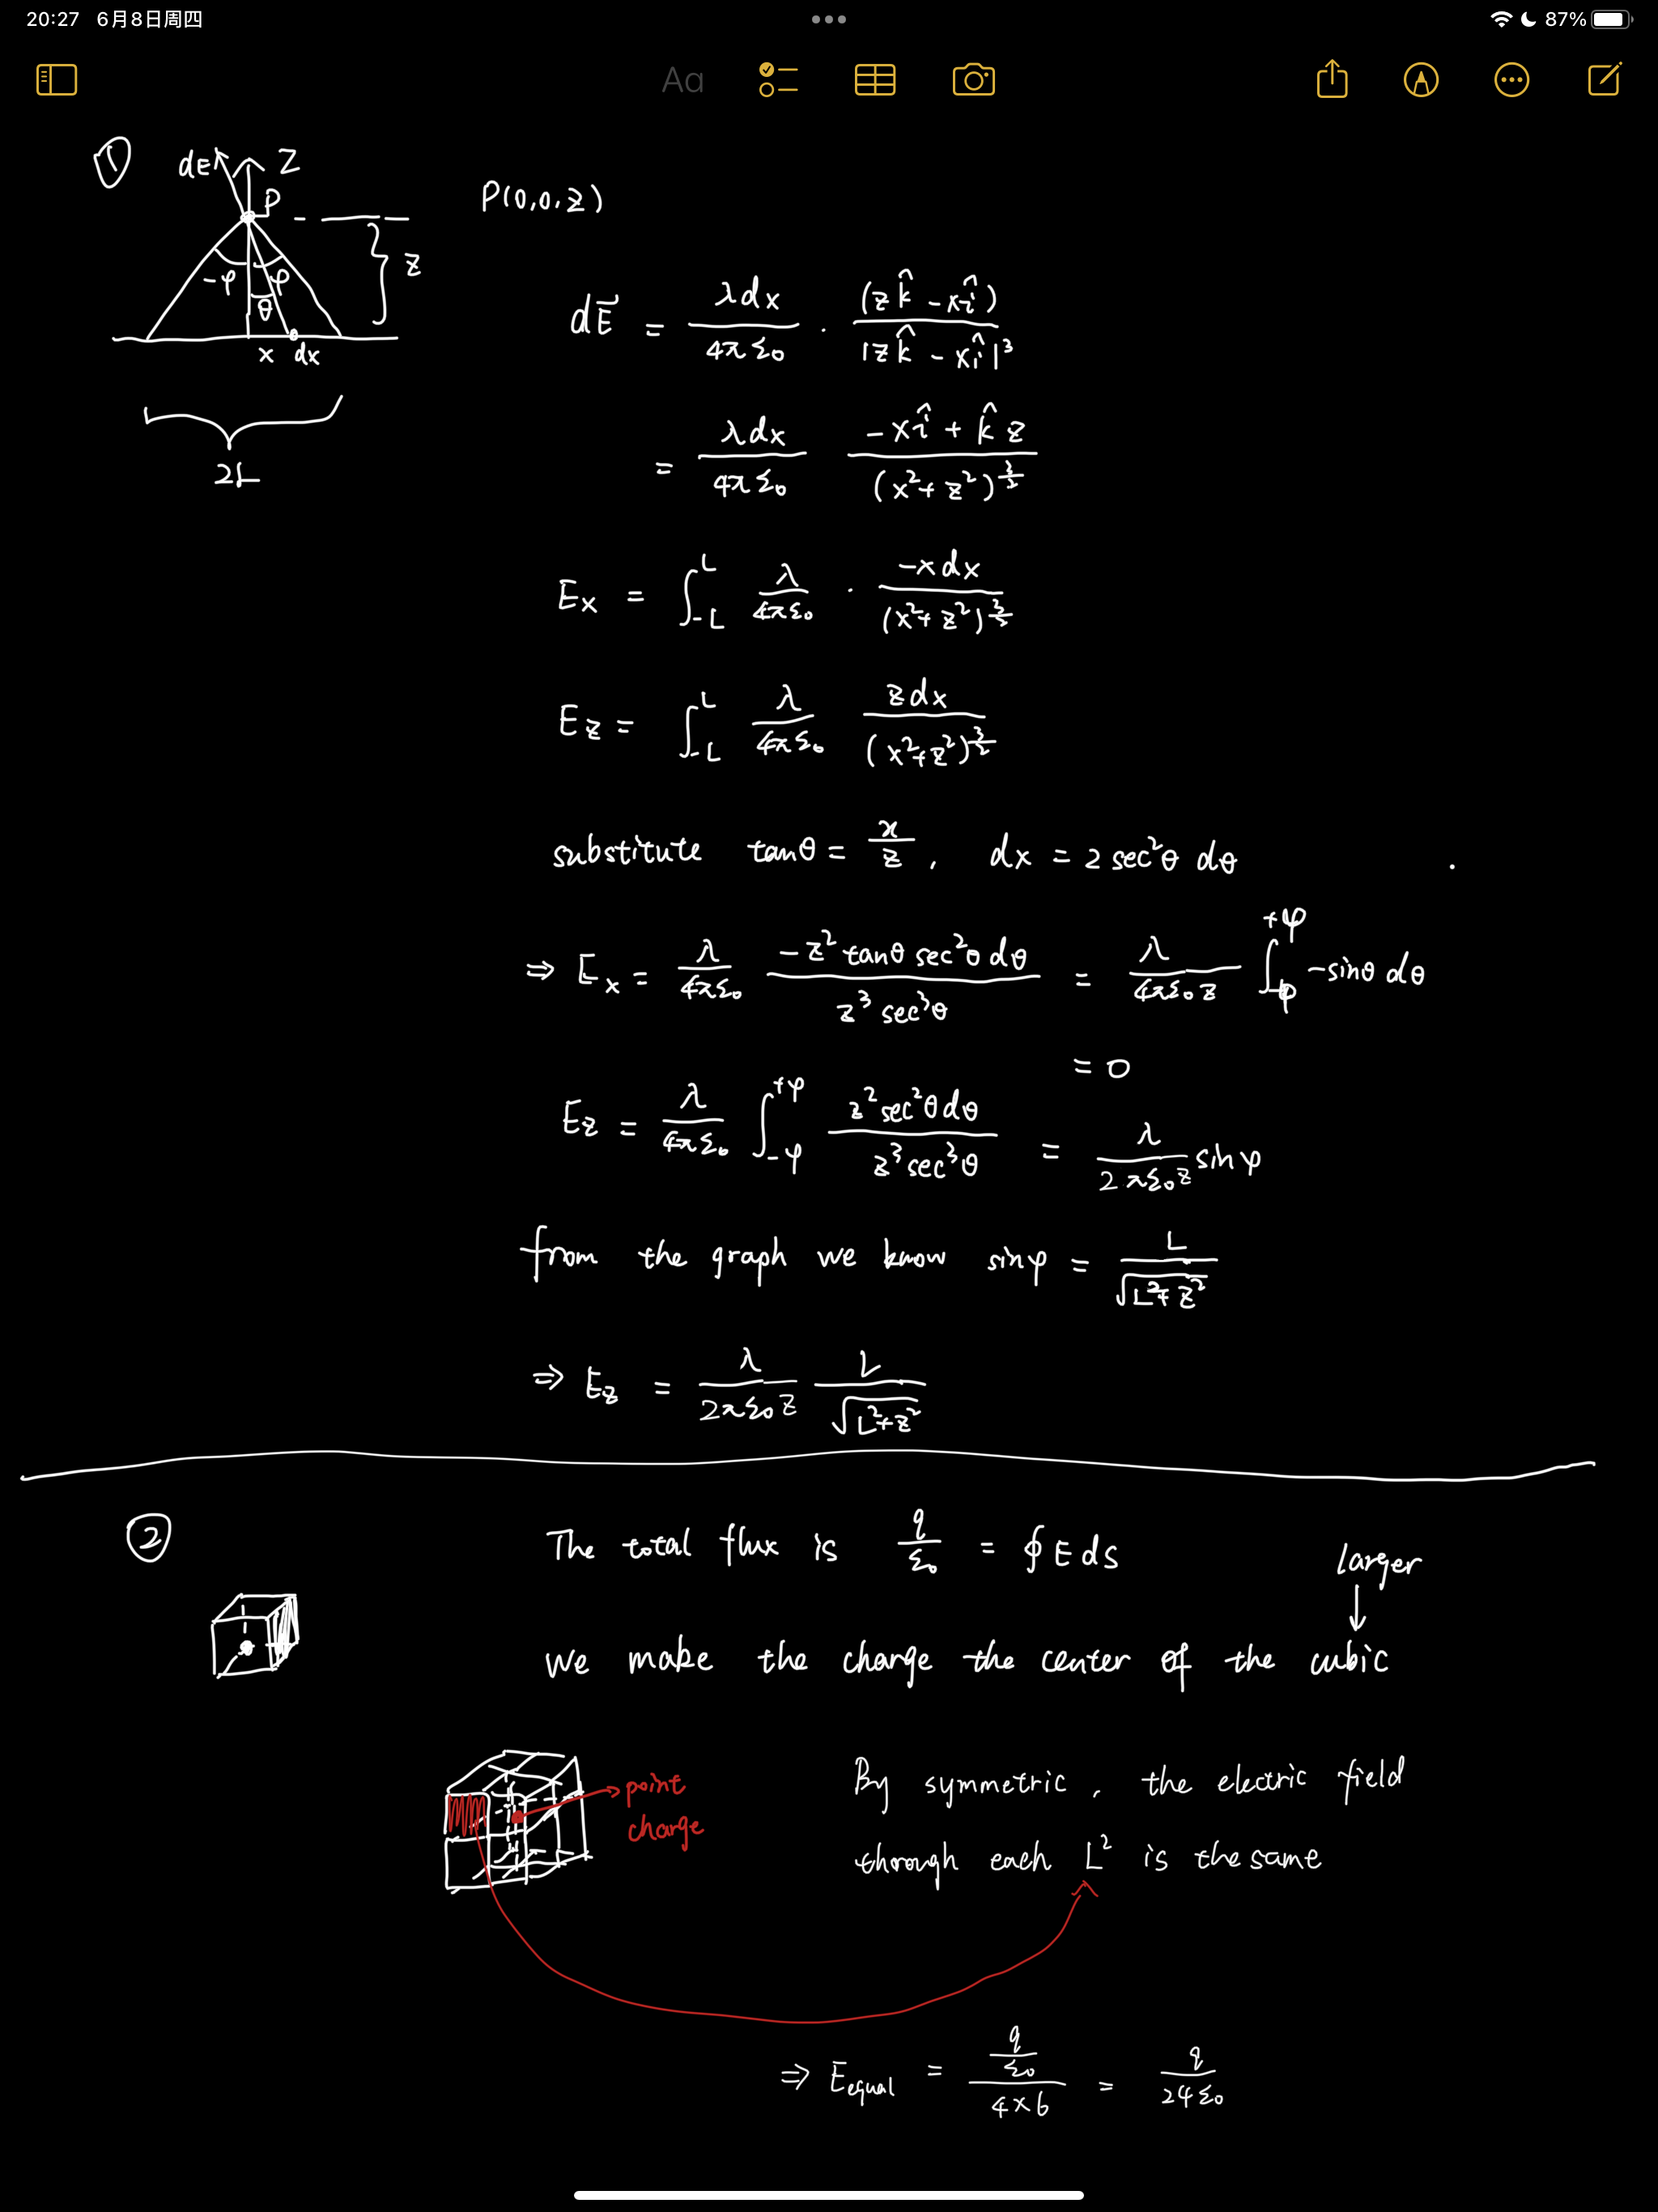 20:27 6月8日周四
87%
Aa
①
dE Z
P
-φ φ
θ
x dx
z
2L
P(0,0,z)
dE⃗ = λdx/4πε₀ · (zk̂ - xî)/|zk̂ - xî|³
= λdx/4πε₀ (-xî + k̂z)/(x²+z²)^(3/2)
Ex = ∫_-L^L λ/4πε₀ · -xdx/(x²+z²)^(3/2)
Ez = ∫_-L^L λ/4πε₀ zdx/(x²+z²)^(3/2)
substitute tanθ = x/z , dx = 2 sec²θ dθ
⇒ Ex = λ/4πε₀ -z²tanθ sec²θ dθ/z³ sec³θ = λ/4πε₀z ∫_-φ^+φ -sinθ dθ
= 0
Ez = λ/4πε₀ ∫_-φ^+φ z²sec²θdθ/z³sec³θ = λ/2πε₀z sinφ
from the graph we know sinφ = L/√(L²+z²)
⇒ Ez = λ/2πε₀z L/√(L²+z²)
②
The total flux is q/ε₀ = ∮E ds
larger
↓
we make the charge the center of the cubic
point
charge
By symmetric , the electric field
through each L² is the same
⇒ Eequal = (q/ε₀)/(4×6) = q/24ε₀